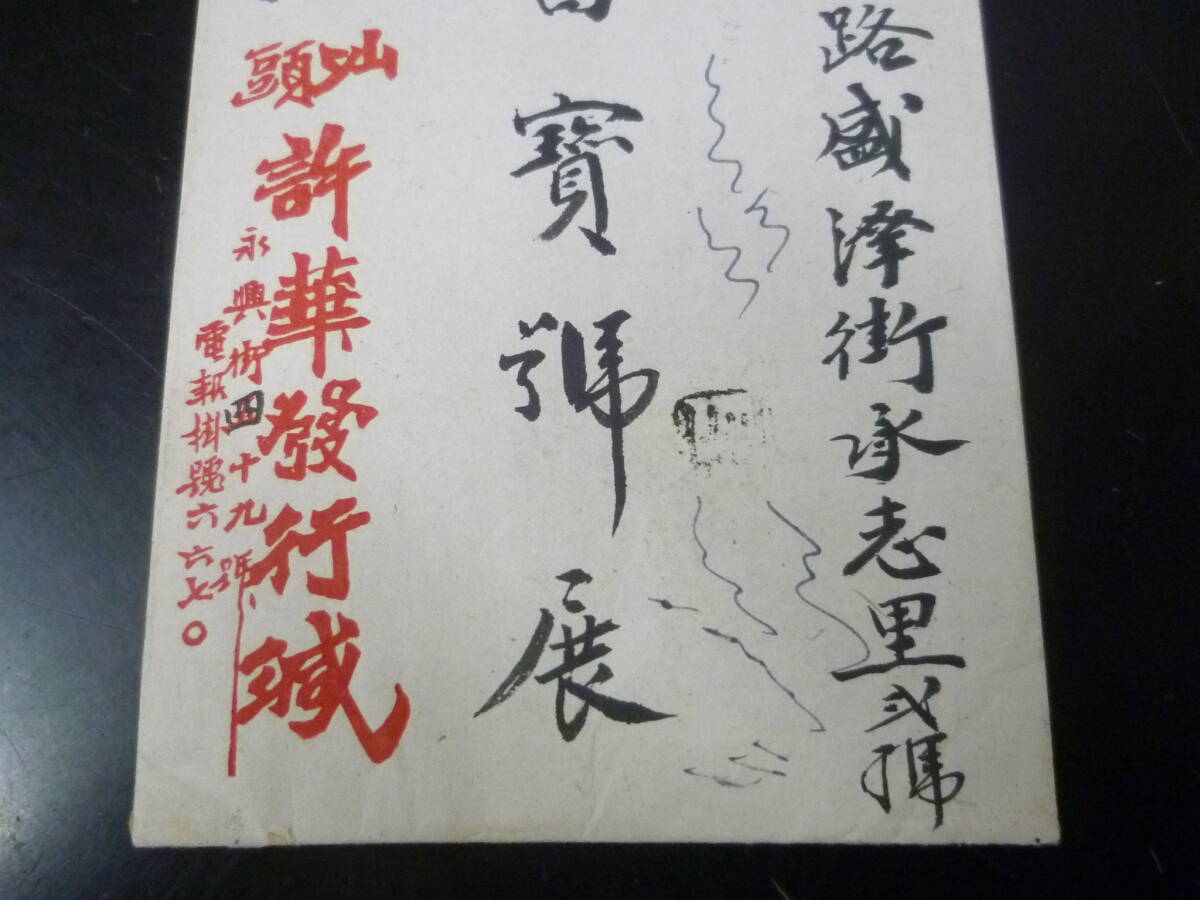 路盛澤街承志里弍號
寶號展
汕頭
許華發行緘
永興街四十九號
電報掛號六六七〇